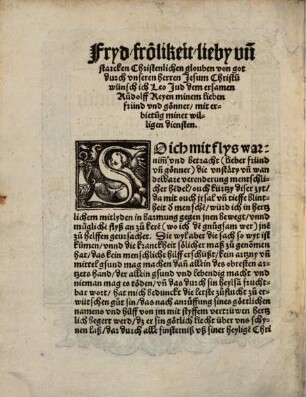 Fryd/frôlikeit/lieby vñ
starcken Christenlichen glouben von got
durch vnseren herren Jesum Christũ
wünsch ich Leo Jud dem ersamen
Růdolff Reyen minem lieben
fründ vnd gönner/ mit er-
bietũg miner wil-
ligen diensten.
SO ich mit flys war-
nim̃ vnd betracht (lieber fründ
vñ gönner) die vnstäty vñ wan
delbare verenderung mentschli-
cher hendel/ ouch kürtzy diser zyt/
da mit ouch jrsal vñ tieffe blint-
heit d menschẽ/ wird ich in hertz
lichem mitlyden in barmung gegen jnen bewegt/ vnnd
mügliche flyß an zů kerẽ (wo ich dẽ gnůgsam wer) jnẽ
zů helffen geursachet. Die wyl aber diß sach so wyt ist
kũmen/ vnnd die kranckheit sölicher maß zů genomen
hat/ das kein menschliche hilff erschüßt/ kein artzny vñ
mittel gsund mag machen dañ allein des obrestẽ artz-
tzets hand/ der allein gsund vnd lebendig macht vnd
nieman mag es töden/ vñ das durch sin heylsã frucht-
bar wort/ hat mich bedunckt die leste zůflucht zů er-
wütschen gůt sin/ das nach anrüffung sines göttlichen
namens vnd hilff von jm mit styffem vertrüwen hertz
lich begert werd/ dz er sin götlich liecht über vns schy-
nen laß/ dardurch alle finsterniß vß siner heyligẽ Chri